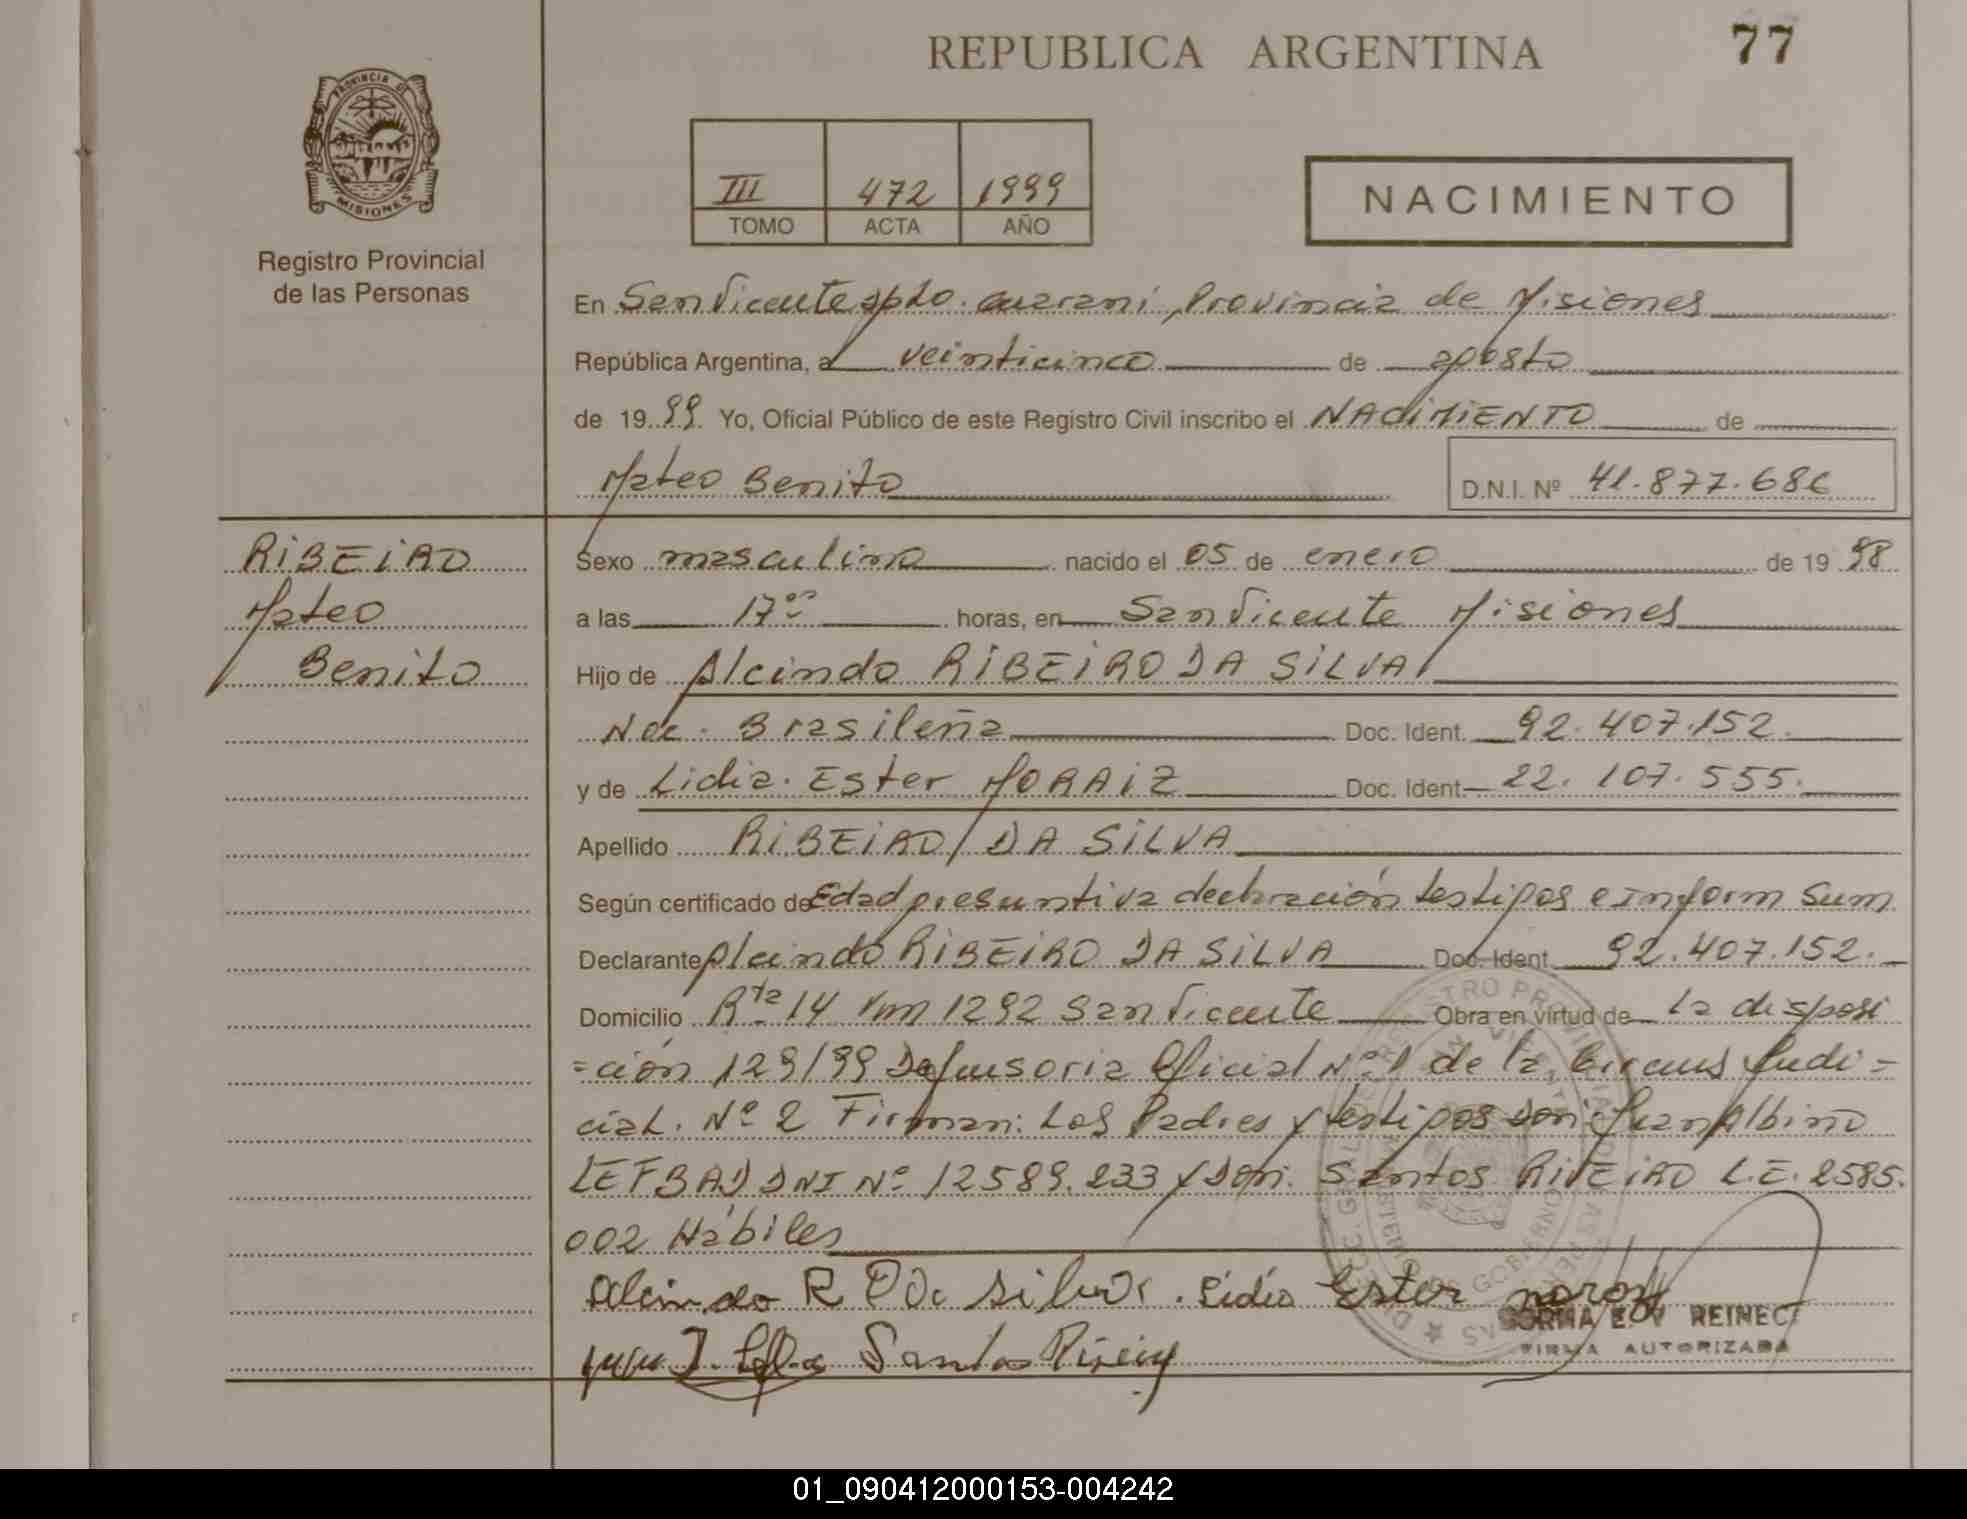 REPUBLICA ARGENTINA
77
PROVINCIA DE
MISIONES
Registro Provincial
de las Personas
III 472 1999
TOMO ACTA AÑO
NACIMIENTO
En San Vicente dpto. Guaraní, Provincia de Misiones
República Argentina, a veinticinco de agosto
de 19 99 Yo, Oficial Público de este Registro Civil inscribo el NACIMIENTO de
Mateo Benito
D.N.I. Nº 41.877.686
RIBEIRO
Mateo
Benito
Sexo masculino nacido el 05 de enero de 19 98
a las 17 horas, en San Vicente Misiones
Hijo de Alcindo RIBEIRO DA SILVA
Nac. Brasileña Doc. Ident. 92.407.152.
y de Lidia Ester MORAIZ Doc. Ident 22.107.555.
Apellido RIBEIRO / DA SILVA
Según certificado de Edad presuntiva declaración testigos e inform Sum
Declarante Alcindo RIBEIRO DA SILVA Doc. Ident 92.407.152.
Domicilio Rta 14 Km 1292 San Vicente Obra en virtud de la disposi
=ción 129/99 Defensoria Oficial Nº 1 de la Circuns Judi=
cial. Nº 2 Firman: Los Padres y testigos Don: Juan Albino
DNI Nº 12589.233 y Don. Santos RIVEIRO L.E. 2585.
002 Hábiles
Alcindo R Da Silva. Lidia Ester
Santos
NORMA E. V REINEC
FIRMA AUTORIZADA
01_090412000153-004242